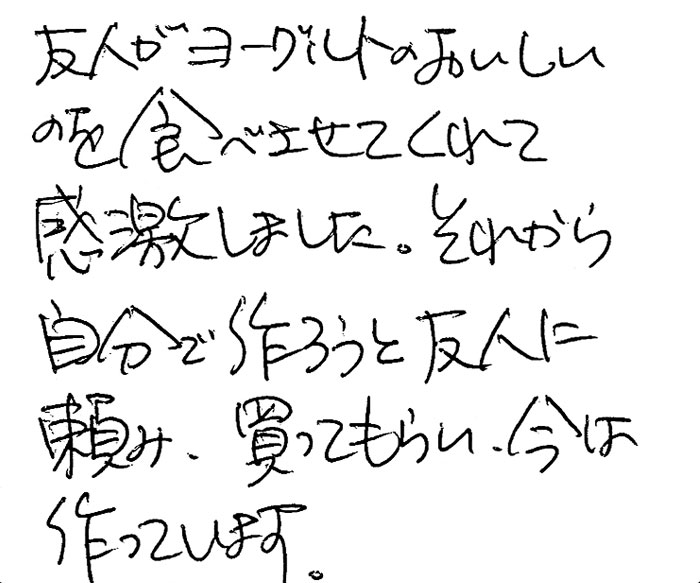 友人がヨーグルトのおいしい
のを食べさせてくれて
感激しました。それから
自分で作ろうと友人に
頼み、買ってもらい、今は
作っています。